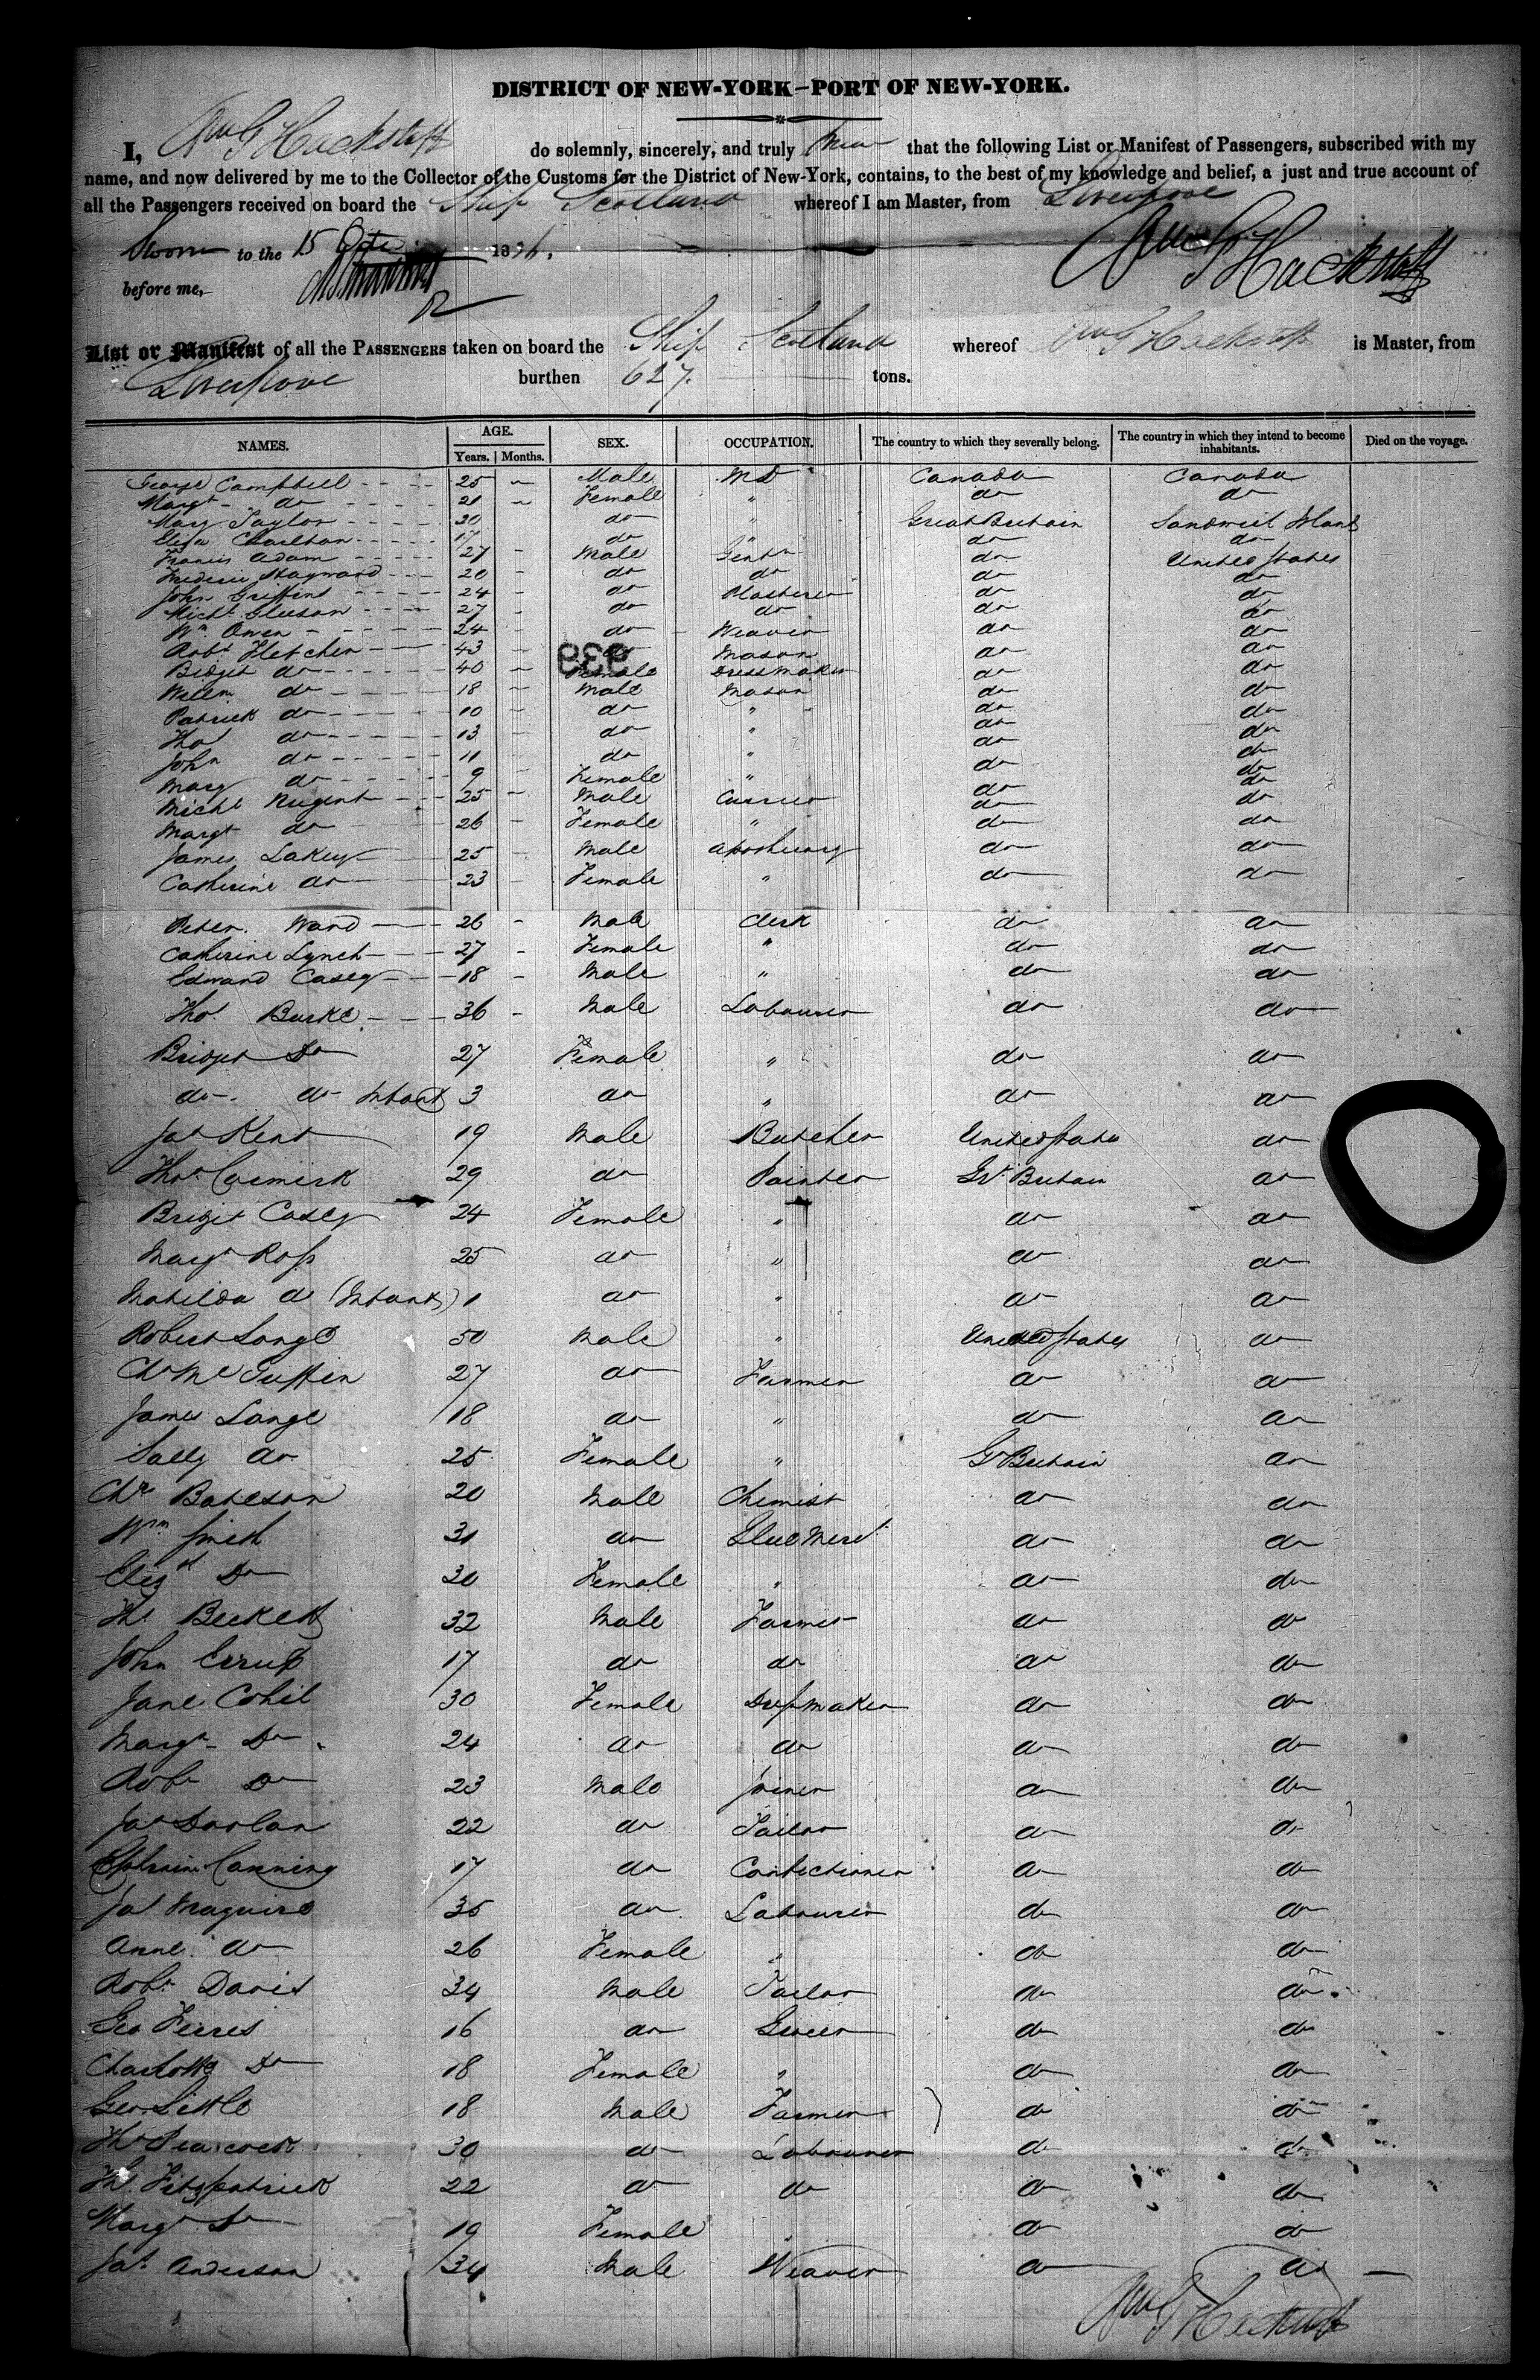 DISTRICT OF NEW-YORK—PORT OF NEW-YORK.
I, Wm G Hackstaff do solemnly, sincerely, and truly that the following List or Manifest of Passengers, subscribed with my
name, and now delivered by me to the Collector of the Customs for the District of New-York, contains, to the best of my knowledge and belief, a just and true account of
all the Passengers received on board the Ship Scotland whereof I am Master, from Liverpool
Sworn to the 15 Octr 1836. Wm G Hackstaff
before me,
List or Manifest of all the PASSENGERS taken on board the Ship Scotland whereof Wm G Hackstaff is Master, from
Liverpool burthen 627. tons.
NAMES. AGE. SEX. OCCUPATION. The country to which they severally belong. The country in which they intend to become inhabitants. Died on the voyage.
Years. Months.
George Campbell 25 Male MD Canada Canada
Margt do 21 Female " do do
Mary Taylor 30 do " Great Britain Sandwich Island
Eliza Charlton 17 do " do do
Francis Adam 27 Male Gentn do United States
Frederic Hayward 20 do do do do
John Griffins 24 do Plasterer do do
Michl Gleeson 27 do do do do
Wm Owen 24 do Weaver do do
Robt Fletcher 43 do Mason do do
939
Bridget do 40 Female Dressmaker do do
Willm do 18 Male Mason do do
Patrick do 10 do " do do
Thos do 13 do " do do
John do 11 do " do do
Mary do 9 Female " do do
Michl Nugent 25 Male Currier do do
Margt do 26 Female " do do
James Lakey 25 Male Apothecary do do
Catherine do 23 Female " do do
Peter Ward 26 Male Clerk do do
Catherine Lynch 27 Female " do do
Edward Casey 18 Male " do do
Thos Burke 36 Male Labourer do do
Bridget Do 27 Female " do do
do do Infant 3 do " do do
Jas Kent 19 Male Butcher United States do
Thos Cormick 29 do Painter Gt Britain do
Bridget Casey 24 Female " do do
Margt Ross 25 do " do do
Matilda do (Infant) 1 do " do do
Robert Lange 50 Male " United States do
Chs McGuffin 27 do Farmer do do
James Lange 18 do " do do
Sally do 25 Female " G Britain do
Chr Bateson 20 Male Chemist do do
Wm 31 do Glue Mercht do do
Elizth Do 30 Female " do do
Ths Beckett 32 Male Farmer do do
John 17 do do do do
Jane Cohil 30 Female Dressmaker do do
Margt Do 24 do do do do
Robt Do 23 Male Joiner do do
Jas 22 do Tailor do do
Ephraim Canning 17 do Confectioner do do
Jas Maguire 35 do Labourer do do
Anne do 26 Female " do do
Robt Davis 34 Male Tailor do do
Geo Ferris 16 do Grocer do do
Charlotte Do 18 Female " do do
Geo Little 18 Male Farmer do do
Ths Peacock 30 do Labourer do do
Ths Fitzpatrick 22 do do do do
Margt Do 19 Female " do do
Jas Anderson 34 Male Weaver do do
Wm G Hackstaff